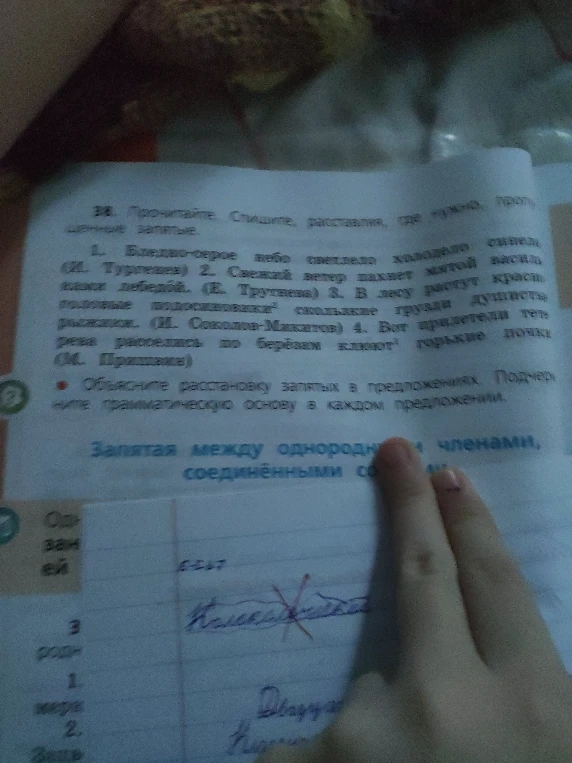 38. Прочитайте. Спишите, расставляя, где нужно, пропу
щенные запятые.
1. Бледно-серое небо светлело холодело синело
(И. Тургенев) 2. Свежий ветер пахнет мятой василь
ками лебедой. (Е. Трутнева) 3. В лесу растут красн
головые подосиновики² скользкие грузди душисты
рыжики. (И. Соколов-Микитов) 4. Вот прилетели тете
рева расселись по берёзам клюют¹ горькие почки
(М. Пришвин)
• Объясните расстановку запятых в предложениях. Подчерк
ните грамматическую основу в каждом предложении.
Запятая между однородн и членами,
соединёнными со
Од
зан
ей
З
родн
1.
мера
2.